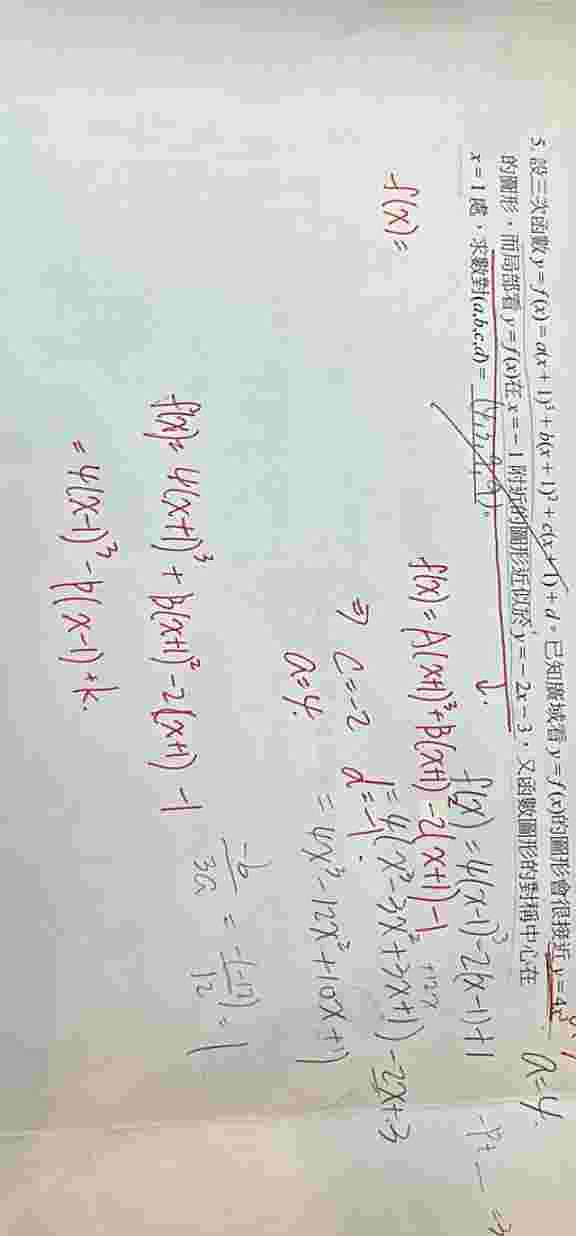 5. 設三次函數 y = f(x) = a(x + 1)³ + b(x + 1)² + c(x + 1) + d。已知廣域看 y = f(x) 的圖形會很接近 y = 4x³
的圖形,而局部看 y = f(x) 在 x = − 1 附近的圖形近似於 y = − 2x − 3,又函數圖形的對稱中心在
x = 1 處,求數對 (a,b,c,d) = 。
a=4.
f(x) = 4(x-1)³-2(x-1)+1
f(x) =
f(x) = A(x+1)³+B(x+1)-2(x+1)-1
+12x
= 4(x³-3x²+3x+1) -2x+3
⇒ C=-2 d=-1.
= 4x³-12x²+10x+7
a=4.
-b/3a = -(-12)/12 = 1
f(x)= 4(x+1)³ + B(x+1)² -2(x+1) -1
= 4(x-1)³ -P(x-1)+k.